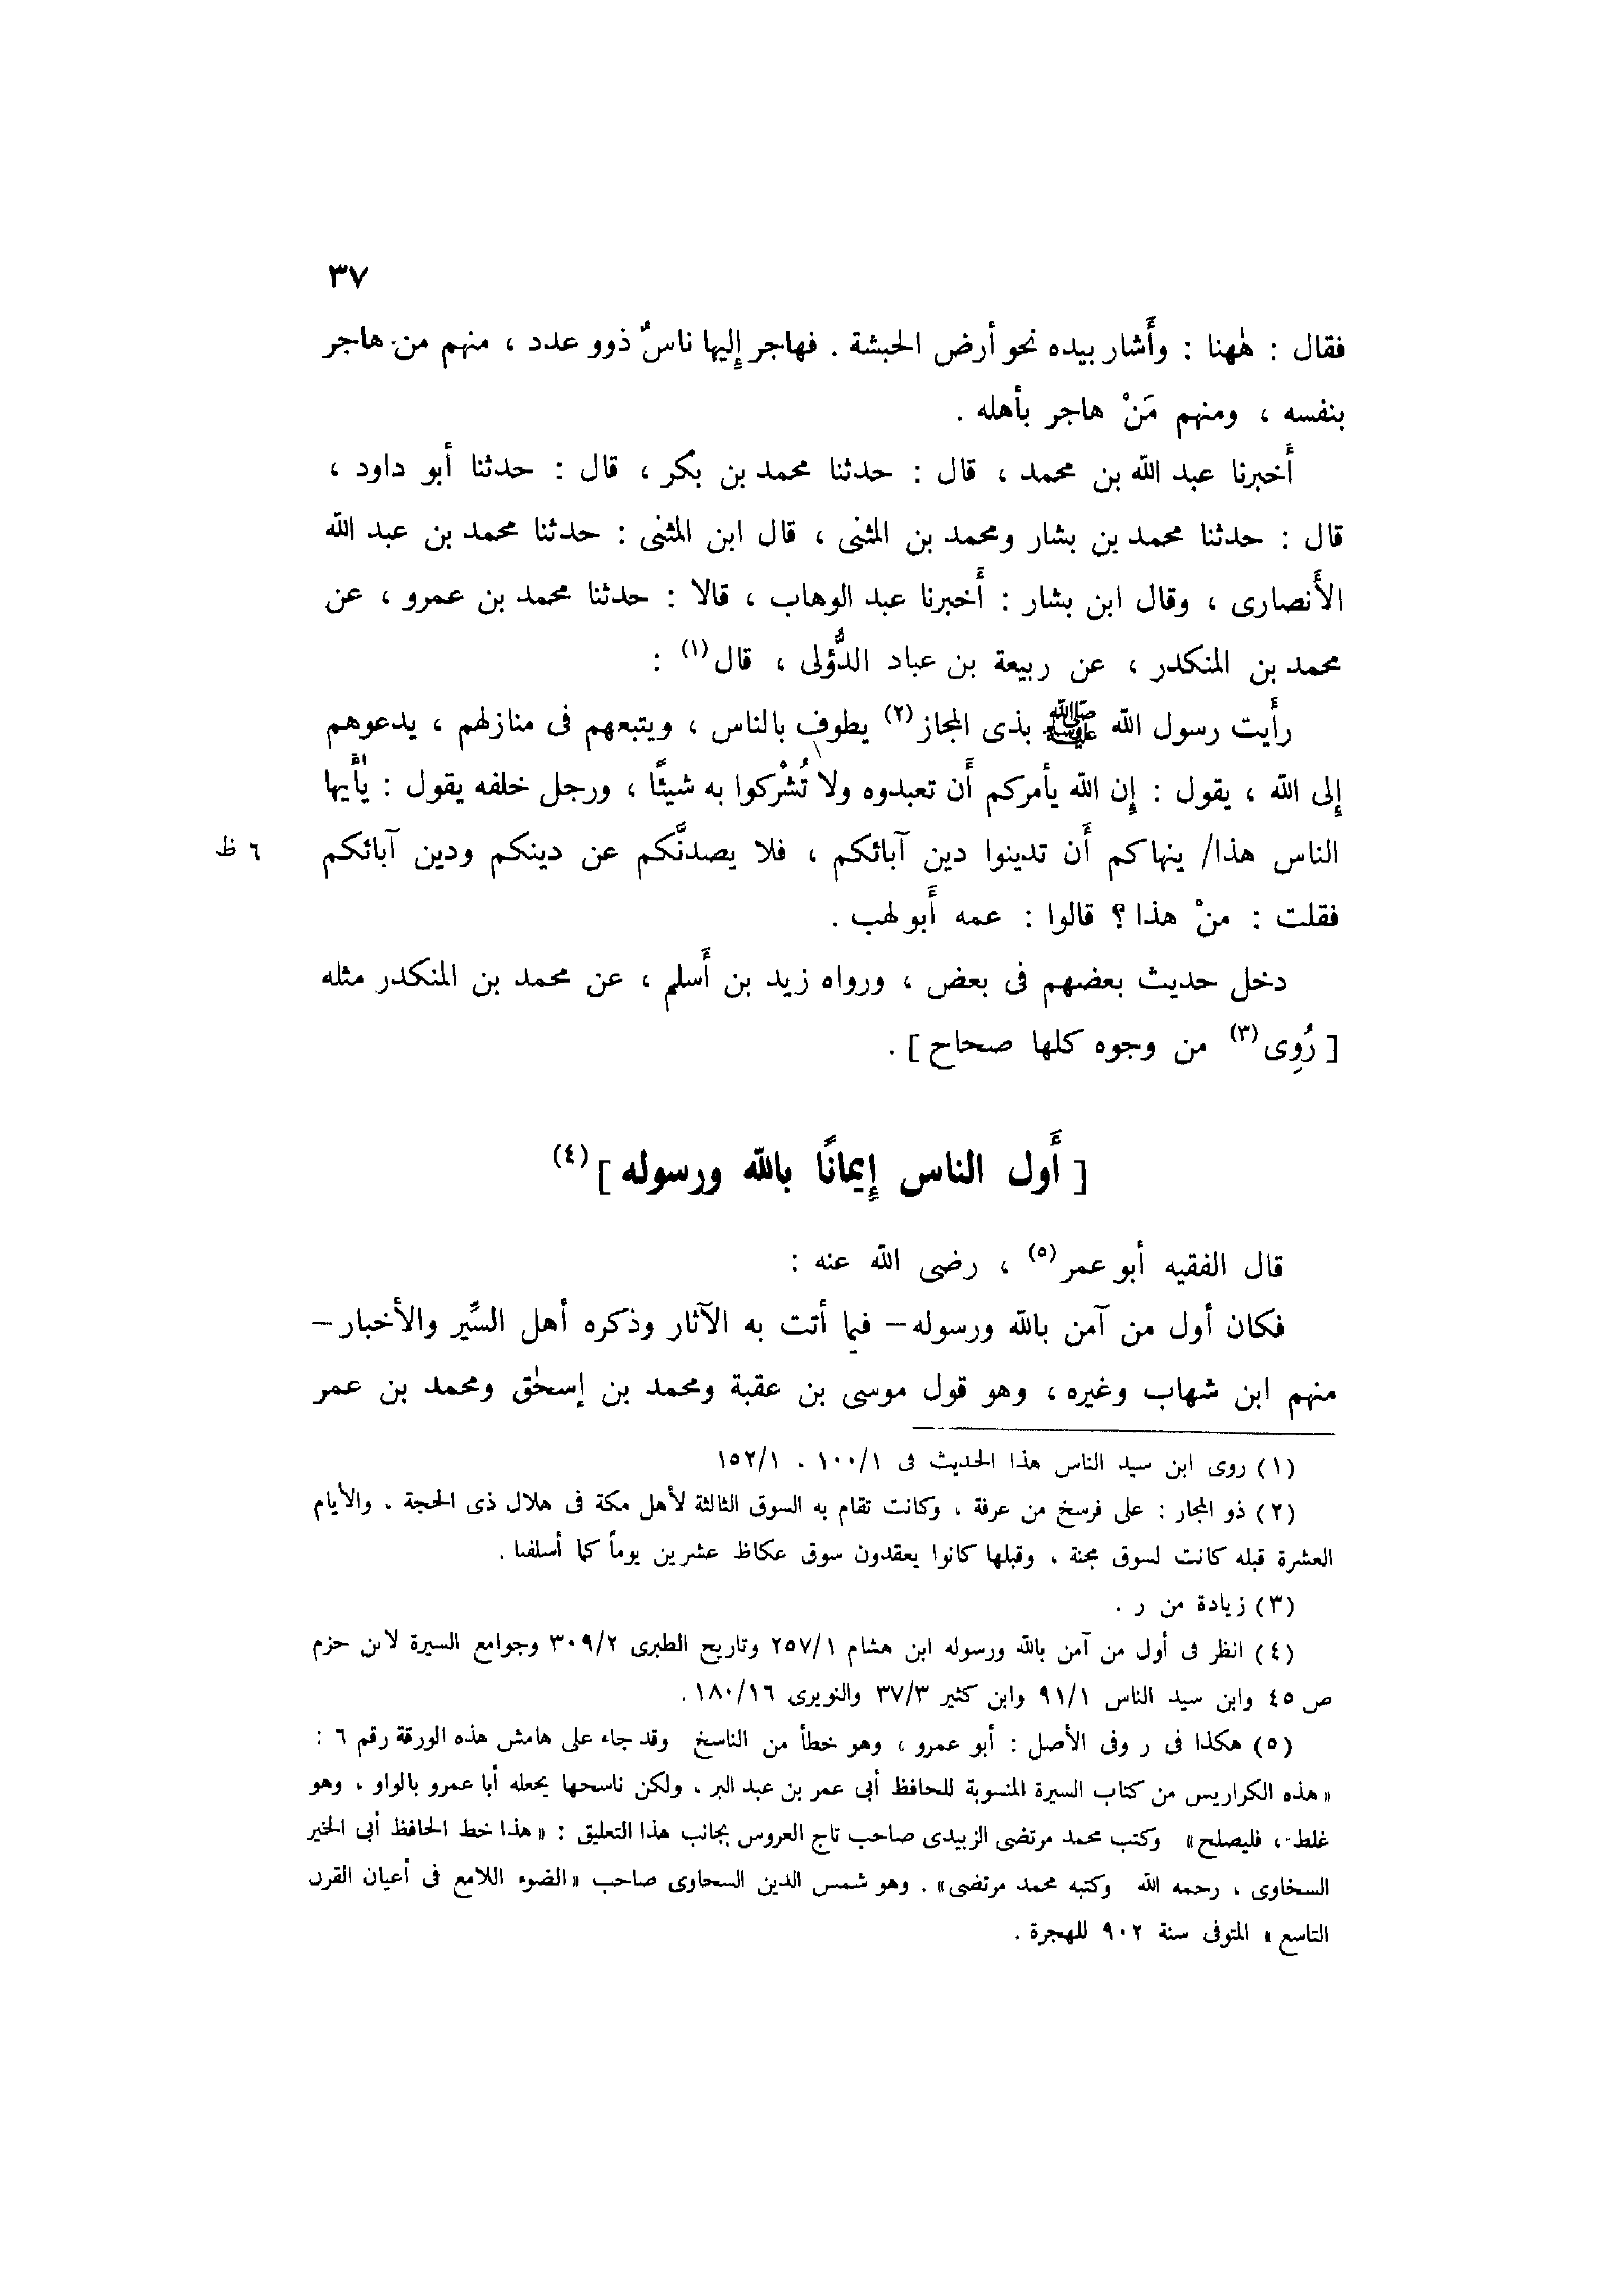 ٣٧
فقال : هٰهنا : وأَشار بيده نحو أرض الحبشة . فهاجر إِليها ناسٌ ذوو عدد ، منهم من هاجر
بنفسه ، ومنهم مَنْ هاجر بأهله .
أَخبرنا عبد الله بن محمد ، قال : حدثنا محمد بن بكر ، قال : حدثنا أبو داود ،
قال : حدثنا محمد بن بشار ومحمد بن المثنى ، قال ابن المثنى : حدثنا محمد بن عبد الله
الأَنصارى ، وقال ابن بشار : أَخبرنا عبد الوهاب ، قالا : حدثنا محمد بن عمرو ، عن
محمد بن المنكدر ، عن ربيعة بن عباد الدُّؤلى ، قال(١) :
رأَيت رسول الله ﷺ بذى المجاز(٢) يطوف بالناس ، ويتبعهم فى منازلهم ، يدعوهم
إِلى الله ، يقول : إِن الله يأمركم أَن تعبدوه ولا تُشْركوا به شيئًا ، ورجل خلفه يقول : يٰأَيها
الناس هذا/ ينهاكم أَن تدينوا دين آبائكم ، فلا يصدنَّكم عن دينكم ودين آبائكم
٦ ظ
فقلت : منْ هذا ؟ قالوا : عمه أَبو لهب .
دخل حديث بعضهم فى بعض ، ورواه زيد بن أَسلم ، عن محمد بن المنكدر مثله
[ رُوِى(٣) من وجوه كلها صحاح ] .
[ أَول الناس إِيمانًا بالله ورسوله ](٤)
قال الفقيه أبو عمر(٥) ، رضى الله عنه :
فكان أول من آمن بالله ورسوله – فيما أتت به الآثار وذكره أهل السِّير والأخبار –
منهم ابن شهاب وغيره ، وهو قول موسى بن عقبة ومحمد بن إسحٰق ومحمد بن عمر
(١) روى ابن سيد الناس هذا الحديث فى ١/١٠٠ ، ١/١٥٢
(٢) ذو المجار : على فرسخ من عرفة ، وكانت تقام به السوق الثالثة لأهل مكة فى هلال ذى الحجة . والأيام
العشرة قبله كانت لسوق مجنة ، وقبلها كانوا يعقدون سوق عكاظ عشرين يوماً كما أسلفنا .
(٣) زيادة من ر .
(٤) انظر فى أول من آمن بالله ورسوله ابن هشام ١/٢٥٧ وتاريح الطبرى ٢/٣٠٩ وجوامع السيرة لابن حزم
ص ٤٥ وابن سيد الناس ١/٩١ وابن كثير ٣/٣٧ والنويرى ١٦/١٨٠ .
(٥) هكذا فى ر وفى الأصل : أبو عمرو ، وهو خطأ من الناسخ وقد جاء على هامش هذه الورقة رقم ٦ :
« هذه الكراريس من كتاب السيرة المنسوبة للحافظ أبى عمر بن عبد البر ، ولكن ناسحها يجعله أبا عمرو بالواو ، وهو
غلط ، فليصلح » وكتب محمد مرتضى الزبيدى صاحب تاج العروس بجانب هذا التعليق : « هذا خط الحافظ أبى الخير
السخاوى ، رحمه الله وكتبه محمد مرتضى » . وهو شمس الدين السحاوى صاحب « الضوء اللامع فى أعيان القرن
التاسع » المتوفى سنة ٩٠٢ للهجرة .